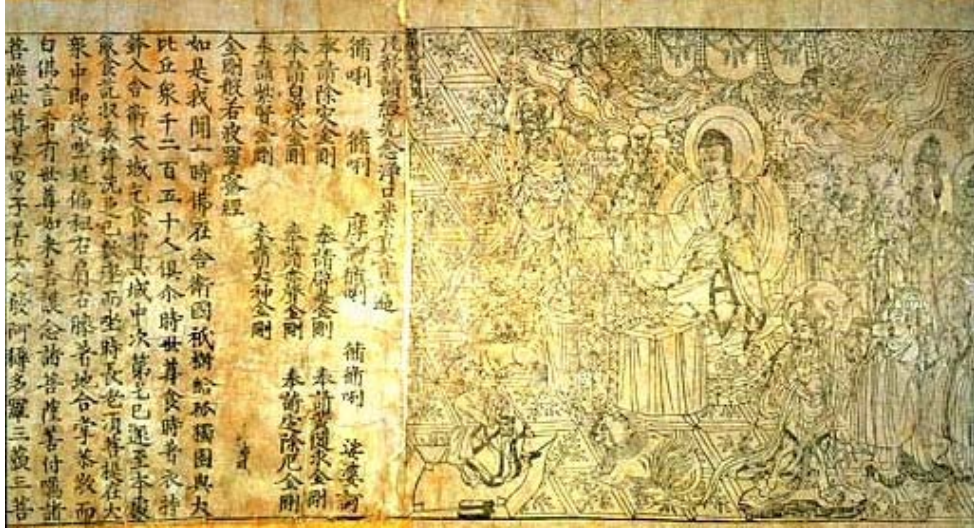 凡欲讀經先念淨口業真言遍
脩唎 脩唎 摩訶脩唎 脩脩唎 娑婆訶
奉請除灾金剛 奉請辟毒金剛 奉請黄隨求金剛
奉請白淨水金剛 奉請赤聲金剛 奉請定除厄金剛
奉請紫賢金剛 奉請大神金剛
金剛般若波羅蜜經
如是我聞一時佛在舍衛國祇樹給孤獨園與大
比丘衆千二百五十人俱尒時世尊食時著衣持
鉢入舍衛大城乞食於其城中次第乞已還至本處
飯食訖收衣鉢洗足已敷座而坐時長老須菩提在大
衆中即從座起偏袒右肩右膝著地合掌恭敬而
白佛言希有世尊如來善護念諸菩薩善付囑諸
菩薩世尊善男子善女人發阿耨多羅三藐三菩